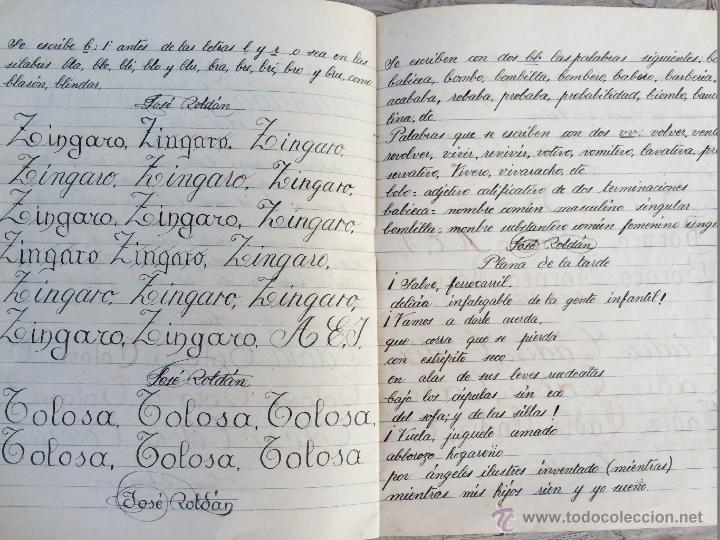 Se escribe b: 1º antes de las letras l y r o sea en las
silabas bla, ble, bli, blo y blu, bra, bre, bri, bro y bru, como
blasón, blindar,
José Roldán
Zíngaro, Zíngaro, Zíngaro,
Zíngaro, Zíngaro, Zíngaro,
Zíngaro, Zíngaro, Zíngaro,
Zíngaro Zíngaro, Zíngaro,
Zíngaro, Zíngaro, Zíngaro,
Zíngaro, Zíngaro, A E I,
José Roldán
Tolosa, Tolosa, Tolosa,
Tolosa, Tolosa, Tolosa
José Roldán
Se escriben con dos bb las palabras siguientes: bo
babieca, bombo, bombilla, bombero, babero, barberia,
acababa, robaba, probaba, probabilidad, biombo, bam
lina, etc.
Palabras que se escriben con dos vv: volver, ven
revolver, vivir, revivir, votivo, vomitivo, lavativa, pre
servativo, Vivero, vivaracho, etc.
bobo: adjetivo calificativo de dos terminaciones
babieca = nombre común masculino singular
bombilla = monbre substantivo común femenino singu
José Roldán
Plana de la tarde
¡Salve, ferrocarril.
delicia infatigable de la gente infantil!
¡Vamos a darle cuerda,
que corra que se pierda
con estrépito seco
en alas de sus leves ruedecitas
bajo las cúpulas sin eco
del sofa; y de las sillas!
¡Vuela, juguete amado
alborozo hogareño
por ángeles ilustres inventado (mientras)
mientras mis hijos rien y yo sueño.
www.todocoleccion.net